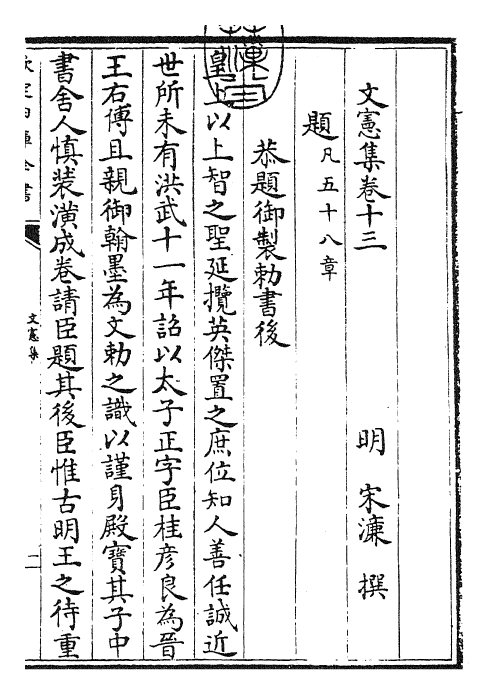 文憲集卷十三
明 宋濂 撰
題凡五十八章
恭題御製勅書後
皇上以上智之聖延攬英傑置之庶位知人善任誠近
世所未有洪武十一年詔以太子正字臣桂彥良為晉
王右傅且親御翰墨為文勅之識以謹身殿寶其子中
書舍人慎裝潢成卷請臣題其後臣惟古明王之待重
欽定四庫全書
文憲集